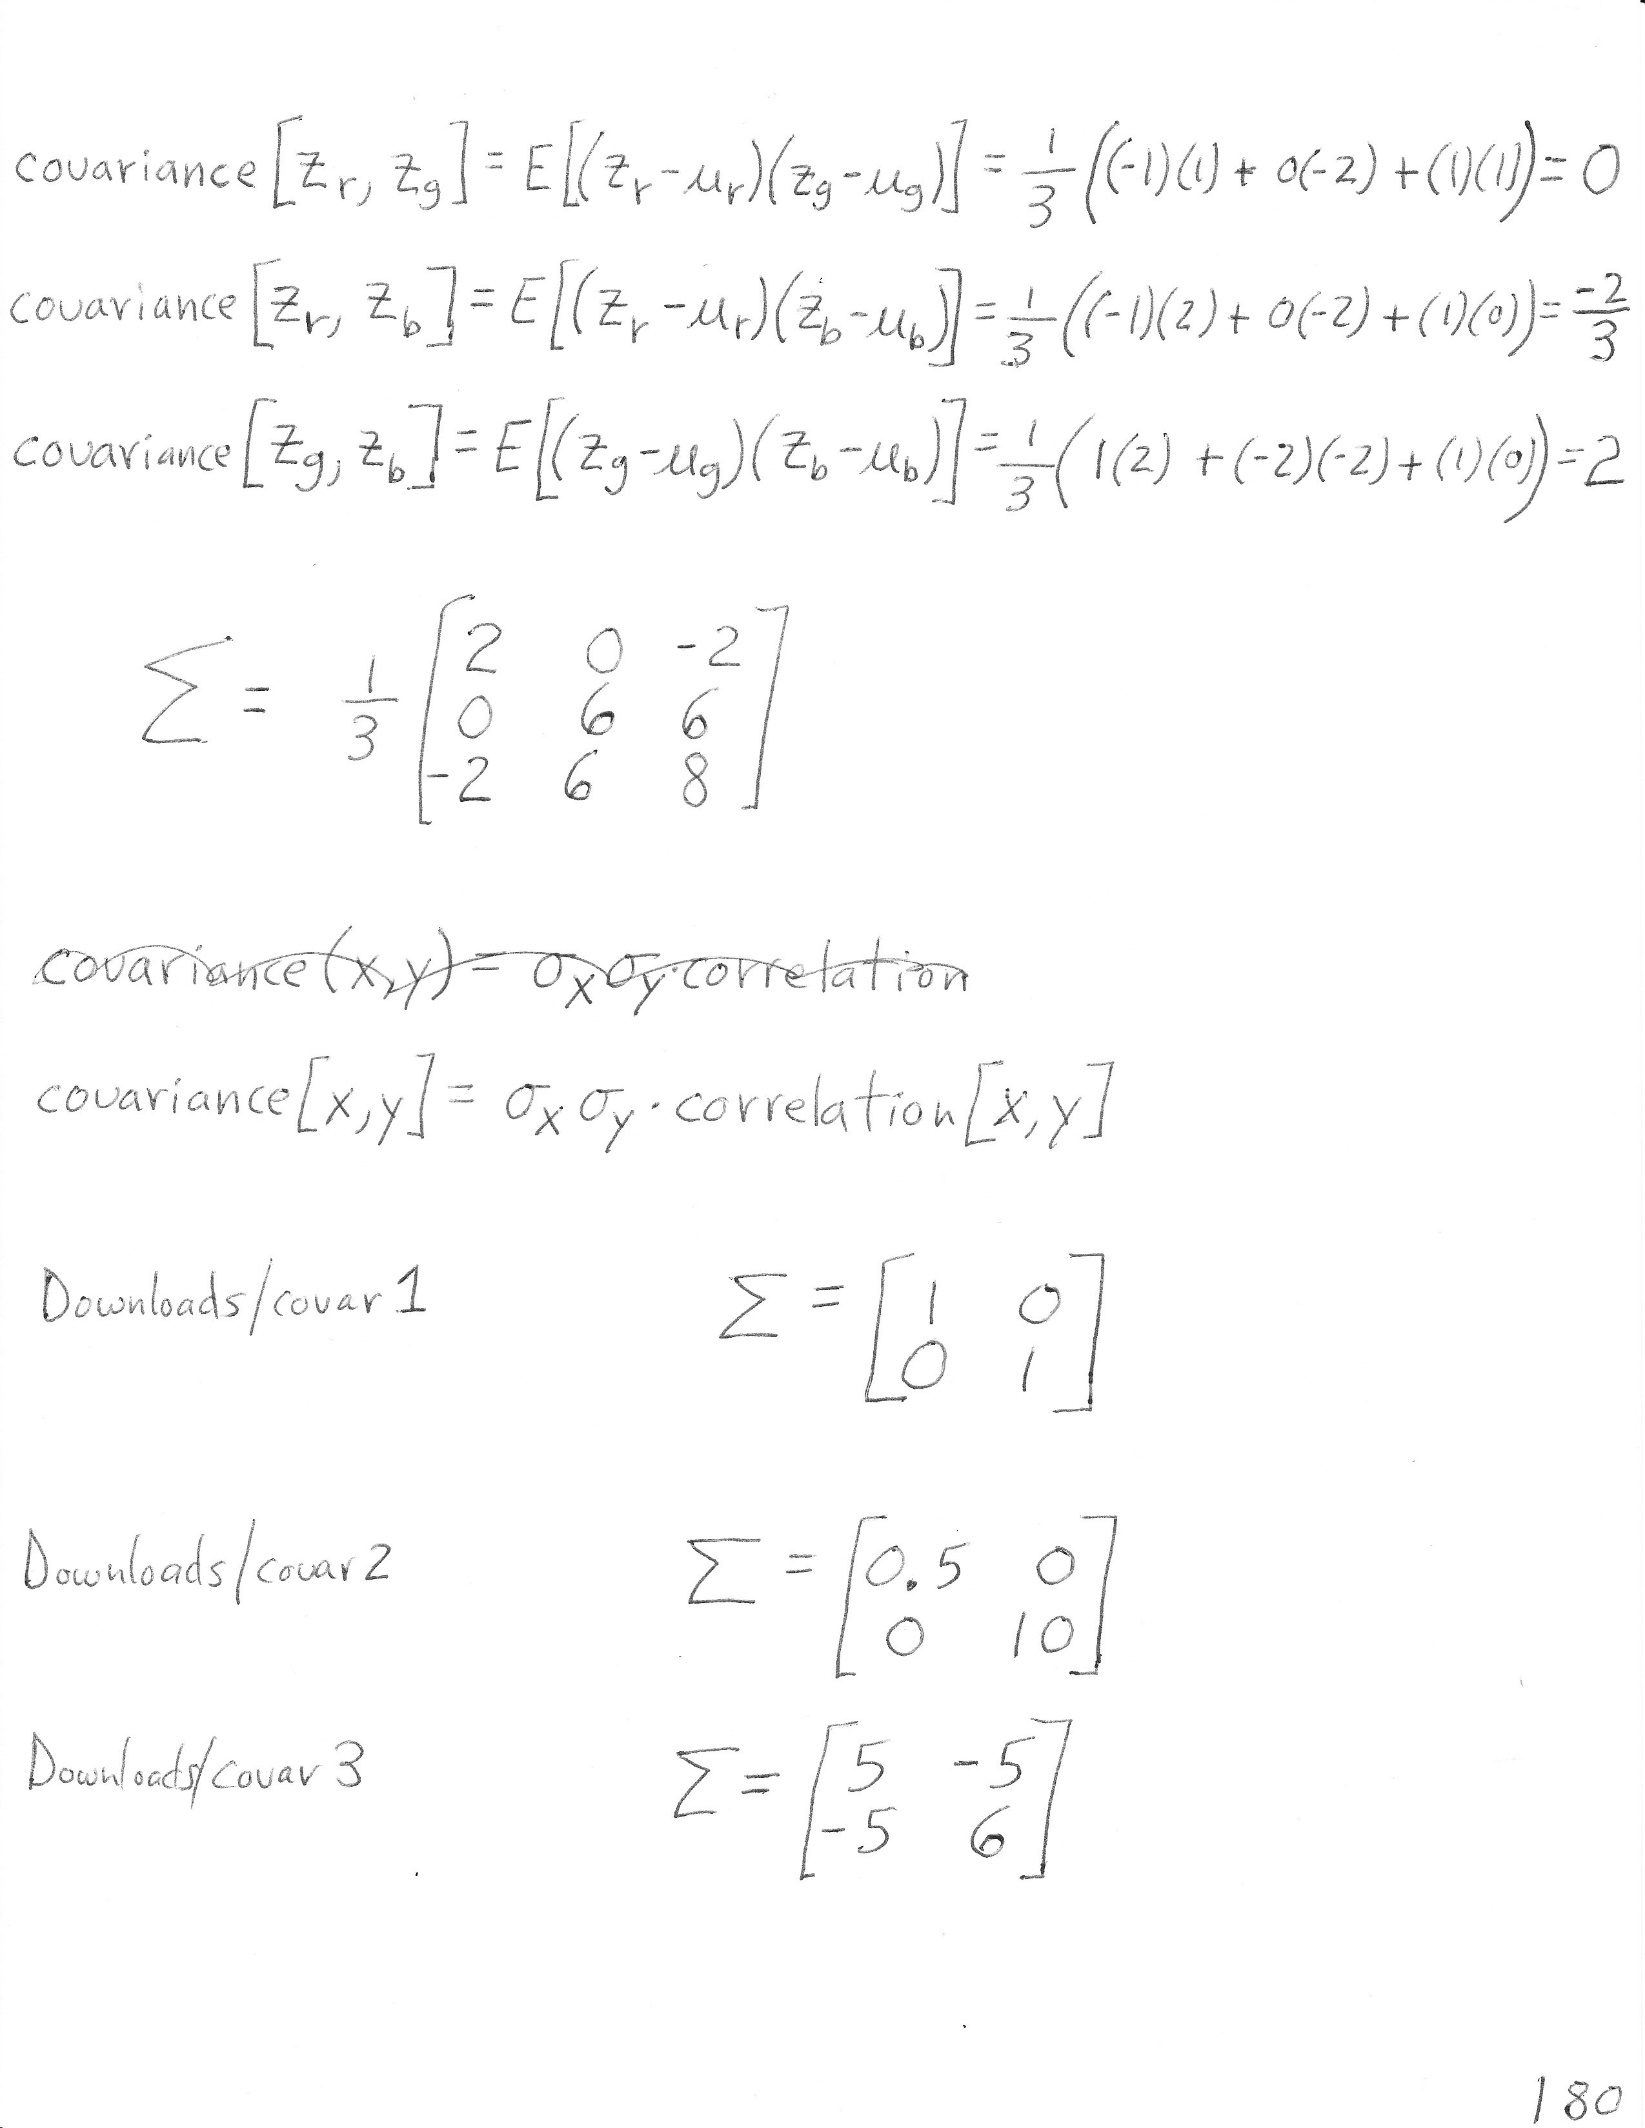 covariance [z_r, z_g] = E[(z_r-μ_r)(z_g-μ_g)] = 1/3 ((-1)(1) + 0(-2) + (1)(1)) = 0
covariance [z_r, z_b] = E[(z_r-μ_r)(z_b-μ_b)] = 1/3 ((-1)(2) + 0(-2) + (1)(0)) = -2/3
covariance [z_g, z_b] = E[(z_g-μ_g)(z_b-μ_b)] = 1/3 (1(2) + (-2)(-2) + (1)(0)) = 2
Σ = 1/3 [2 0 -2
0 6 6
-2 6 8]
covariance(x,y) = σ_x σ_y·correlation
covariance[x,y] = σ_x σ_y·correlation[x,y]
Downloads/covar 1 Σ = [1 0
0 1]
Downloads/covar 2 Σ = [0.5 0
0 10]
Downloads/covar 3 Σ = [5 -5
-5 6]
180